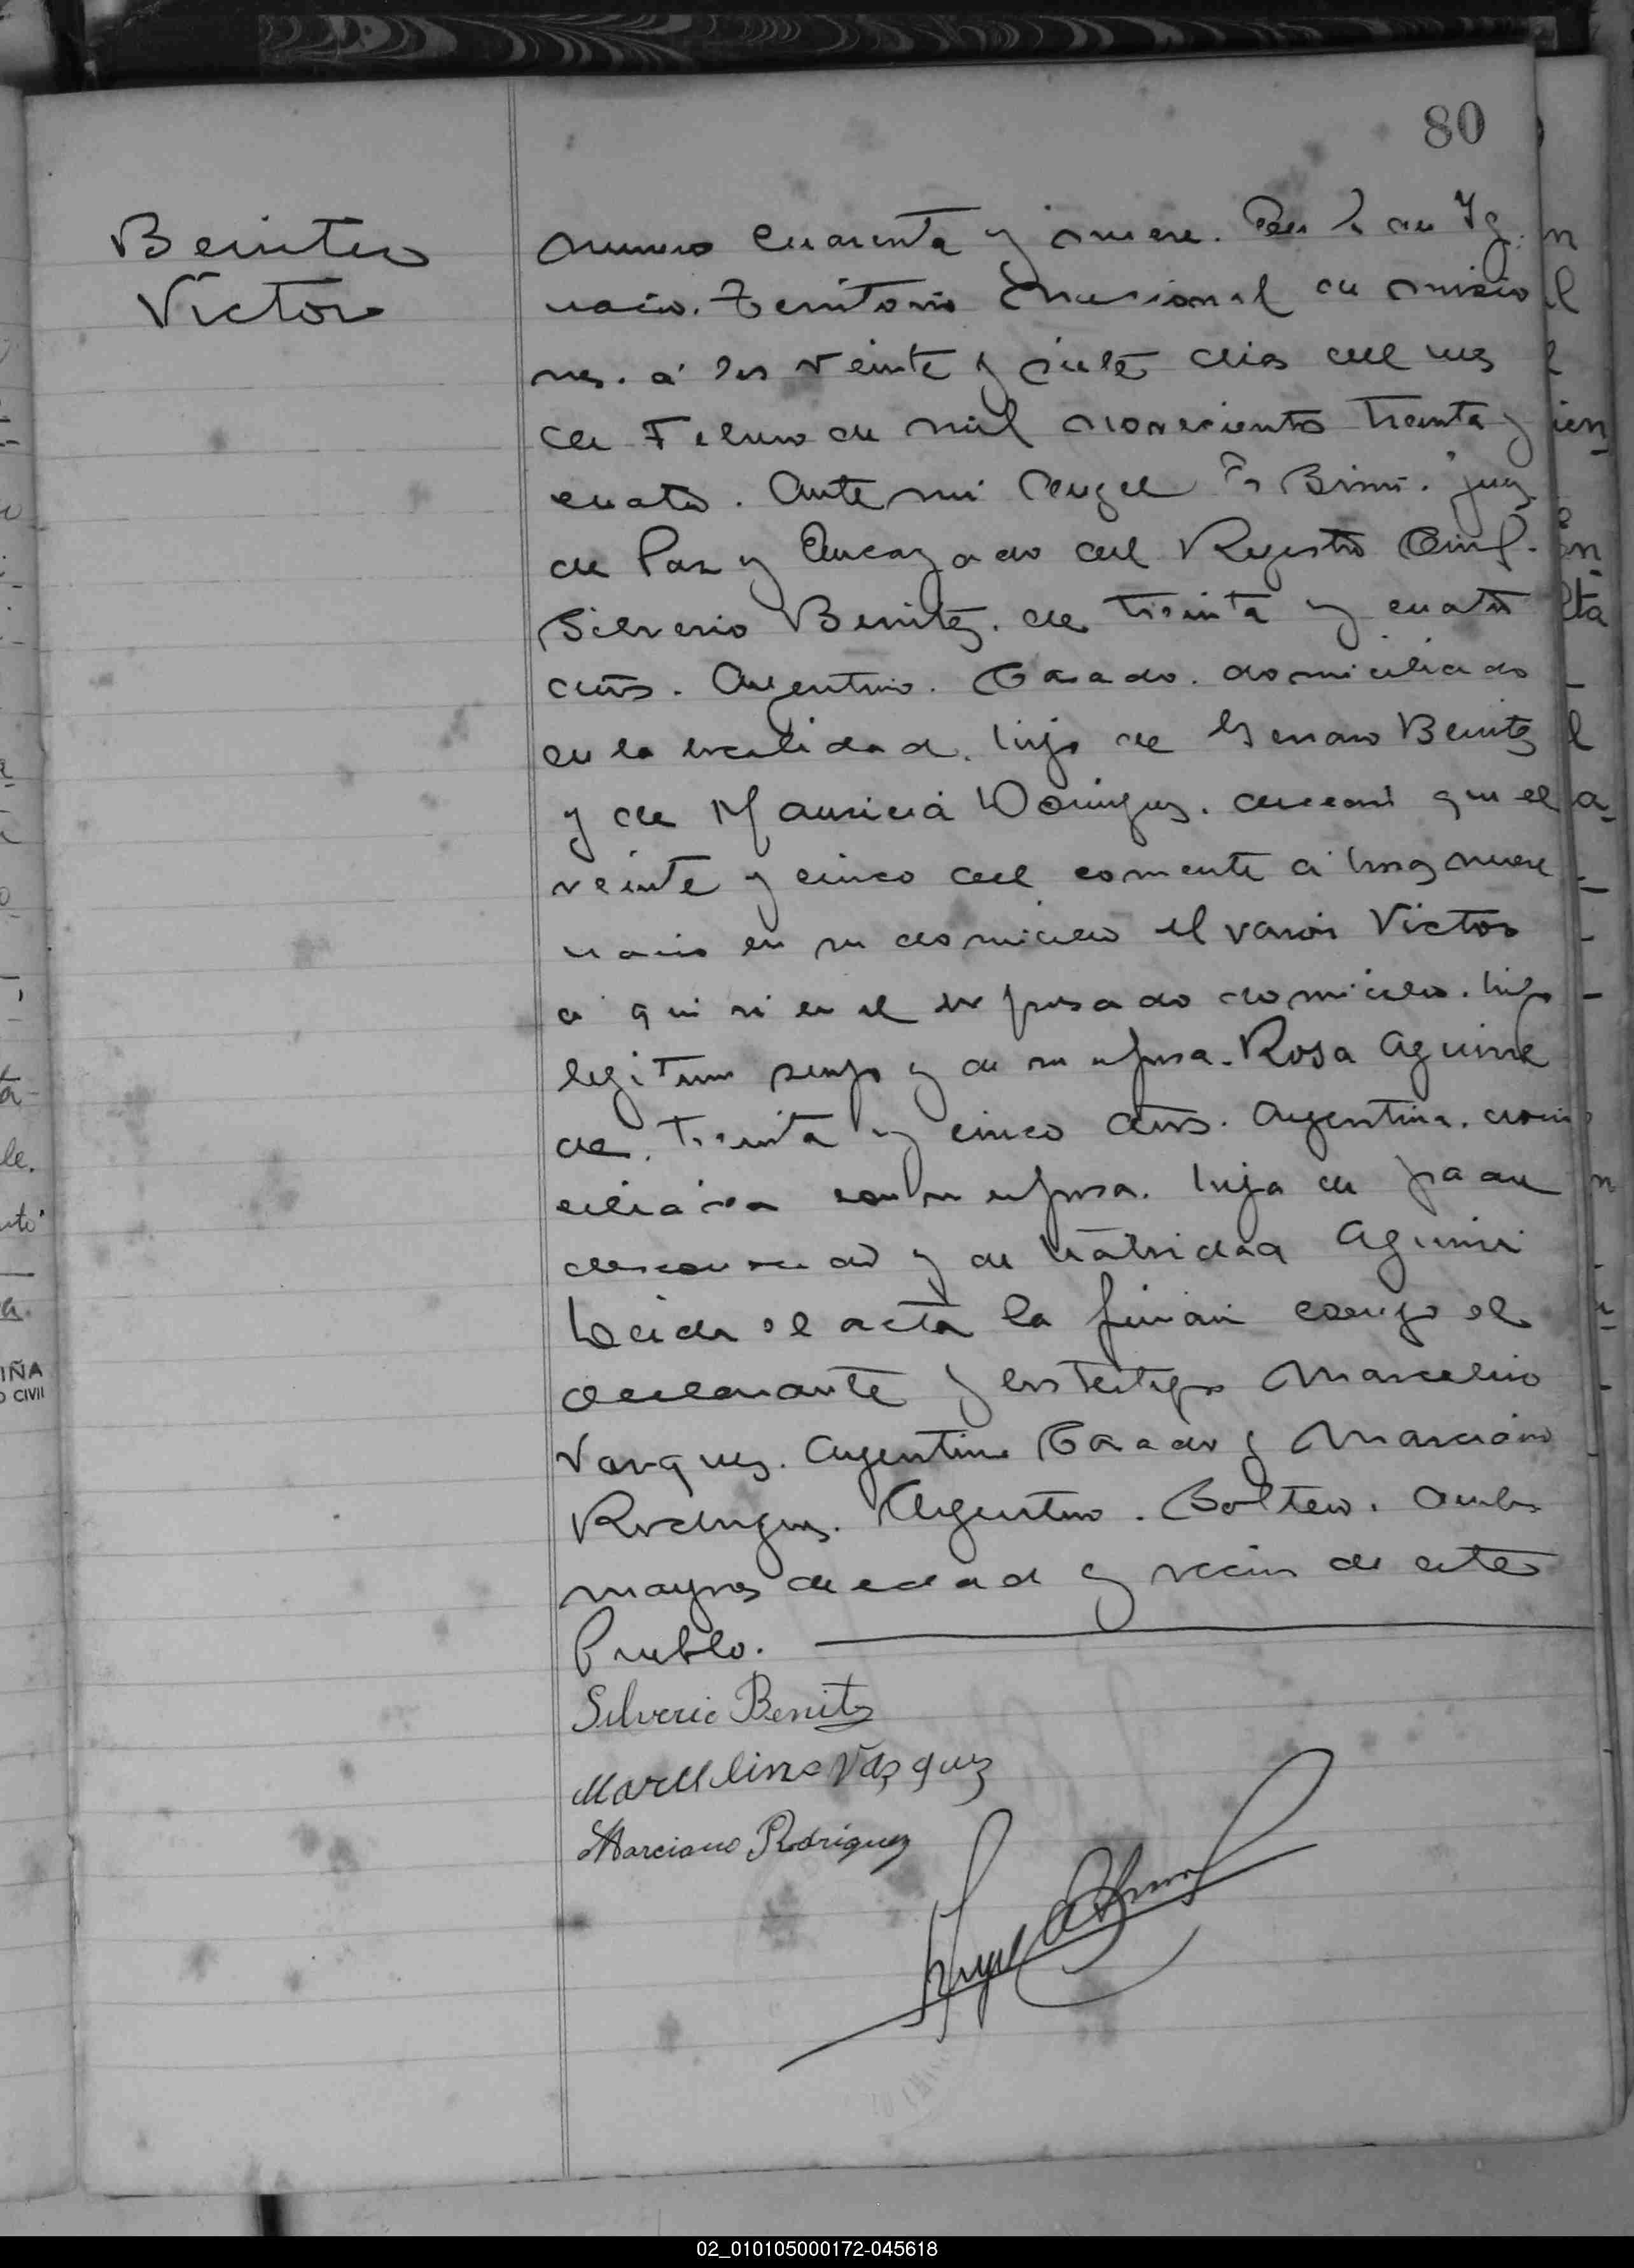 80
Benitez
Victor
numero cuarenta y nueve. En S. an Ig
nacio. Territorio Nacional de Misio
nes. á los veinte y siete dias del mes
de Febrero de mil novecientos treinta y
cuatro. Ante mi Angel juez
de Paz y Encargado del Registro Civil.
Silverio Benitez. de treinta y cuatro
años. Argentino. Casado. domiciliado
en la localidad. hijo de Genaro Benitez
y de Mauricia Dominguez. declaró que el
veinte y cinco del corriente á horas nueve
nació en su domicilio el varón Victor
a qui vi en el expresado domicilio. hijo
legitimo suyo y de su esposa. Rosa Aguirre
de. treinta y cinco años. Argentina. domi
ciliada con su esposo. hija de padre
desconocido y de Natividad Aguirre
Leida el acta la firman conmigo el
declarante y los testigos Marcelino
Vasquez. Argentino Casado y Marciano
Rodriguez. Argentino. Soltero. Ambos
mayores de edad y vecinos de este
Pueblo.
Silverio Benitez
Marcelino Vasquez
Marciano Rodriguez
Angel
IÑA
O CIVIL
02_010105000172-045618